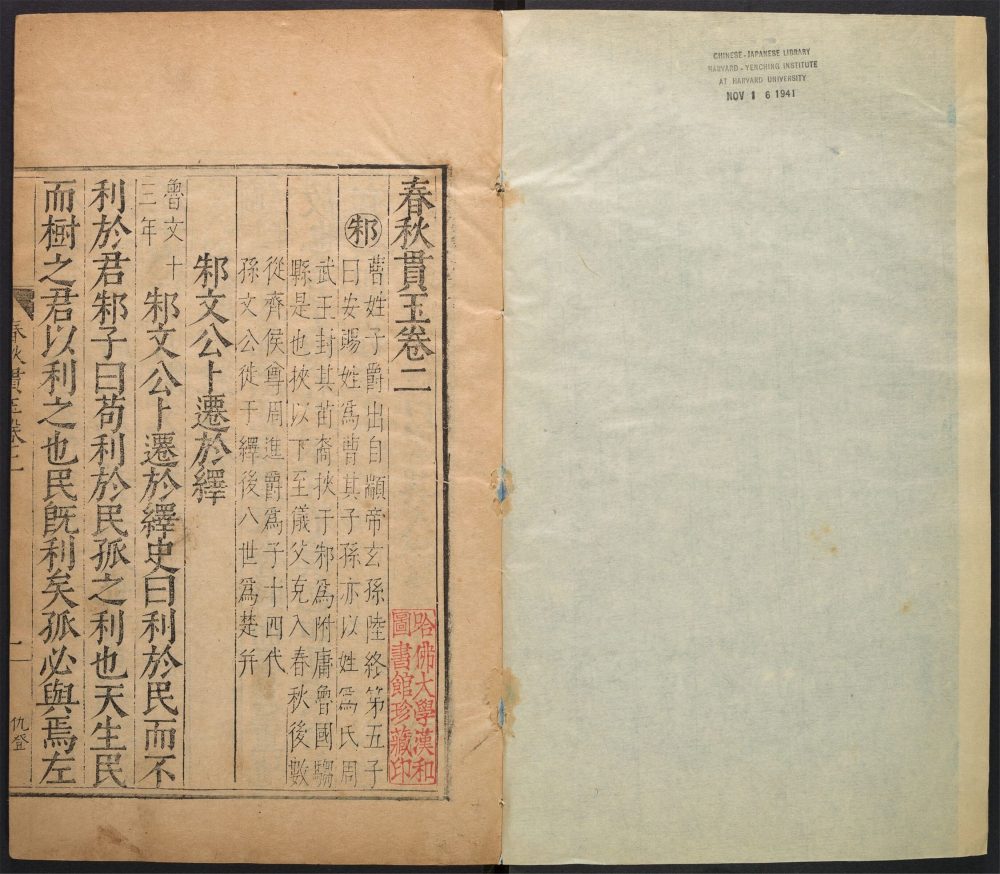 CHINESE-JAPANESE LIBRARY
HARVARD-YENCHING INSTITUTE
AT HARVARD UNIVERSITY
NOV 16 1941
春秋貫玉卷二
哈佛大學漢和
圖書館珍藏印
邾
曹姓子爵出自顓帝玄孫陸終第五子
曰安賜姓爲曹其子孫亦以姓爲氏周
武王封其苗裔挾于邾爲附庸魯國騶
縣是也挾以下至儀父克入春秋後數
從齊侯尊周進爵爲子十四代
孫文公徙于繹後八世爲楚并
邾文公卜遷於繹
魯文十
三年
邾文公卜遷於繹史曰利於民而不
利於君邾子曰苟利於民孤之利也天生民
而樹之君以利之也民旣利矣孤必與焉左
春秋貫玉卷二
仇登